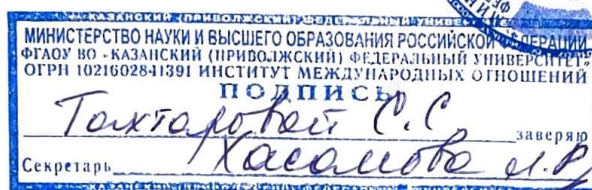 КАЗАНСКИЙ (ПРИВОЛЖСКИЙ) ФЕДЕРАЛЬНЫЙ
МИНИСТЕРСТВО НАУКИ И ВЫСШЕГО ОБРАЗОВАНИЯ РОССИЙСКОЙ ФЕДЕРАЦИИ
ФГАОУ ВО «КАЗАНСКИЙ (ПРИВОЛЖСКИЙ) ФЕДЕРАЛЬНЫЙ УНИВЕРСИТЕТ»
ОГРН 1021602841391 ИНСТИТУТ МЕЖДУНАРОДНЫХ ОТНОШЕНИЙ
ПОДПИСЬ
Тахтаровой С.С заверяю
Секретарь